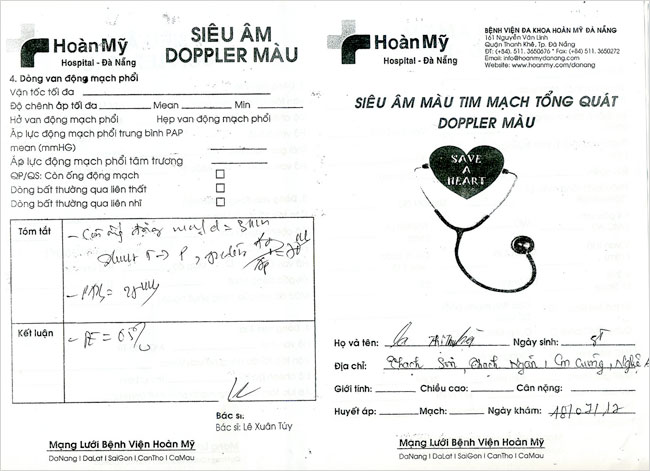 Hoàn Mỹ
Hospital - Đà Nẵng
SIÊU ÂM
DOPPLER MÀU
4. Dòng van động mạch phổi
Vận tốc tối đa
Độ chênh áp tối đa Mean Min
Hở van động mạch phổi Hẹp van động mạch phổi
Áp lực động mạch phổi trung bình PAP
mean (mmHG)
Áp lực động mạch phổi tâm trương
QP/QS: Còn ống động mạch
Dòng bất thường qua liên thất
Dòng bất thường qua liên nhĩ
Tóm tắt
- Còn ống động mạch d = 3mm
shunt T → P,
Kết luận
- EF = 65%
Bác sĩ:
Bác sĩ: Lê Xuân Túy
Mạng Lưới Bệnh Viện Hoàn Mỹ
DaNang I DaLat I SaiGon I CanTho I CaMau
Hoàn Mỹ
Hospital - Đà Nẵng
BỆNH VIỆN ĐA KHOA HOÀN MỸ ĐÀ NẴNG
161 Nguyễn Văn Linh
Quận Thanh Khê, Tp. Đà Nẵng
ĐT: (+84). 511. 3650676 * Fax: (+84) 511. 3650272
Email: info@hoanmydanang.com
Website: www.hoanmy.com/danang
SIÊU ÂM MÀU TIM MẠCH TỔNG QUÁT
DOPPLER MÀU
SAVE
A
HEART
Họ và tên: Ngày sinh:
Địa chỉ: Thạch Sơn, Thạch Ngàn, Con Cuông, Nghệ A
Giới tính: Chiều cao: Cân nặng:
Huyết áp: Mạch: Ngày khám: 18/07/12
Mạng Lưới Bệnh Viện Hoàn Mỹ
DaNang I DaLat I SaiGon I CanTho I CaMau